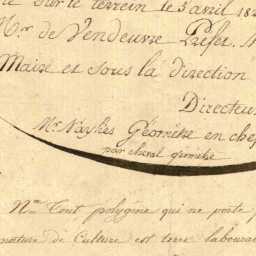 sur le terrein le 5 avril 182
Mr. de Vendeuvre Préfet, M
Maire et sous la direction
Directeur
Mr. Naykes Géomètre en chef
par géomètre
Nta. Tout polygone qui ne porte p
nature de Culture est terre laboura